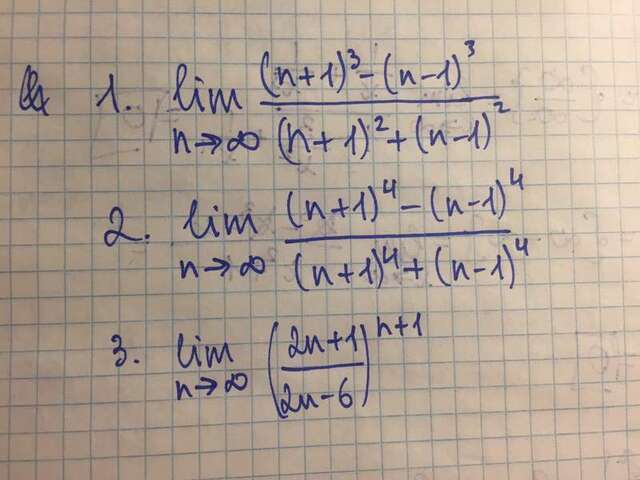 1. lim n→∞ ((n+1)³-(n-1)³)/((n+1)²+(n-1)²)
2. lim n→∞ ((n+1)⁴-(n-1)⁴)/((n+1)⁴+(n-1)⁴)
3. lim n→∞ ((2n+1)/(2n-6))ⁿ⁺¹